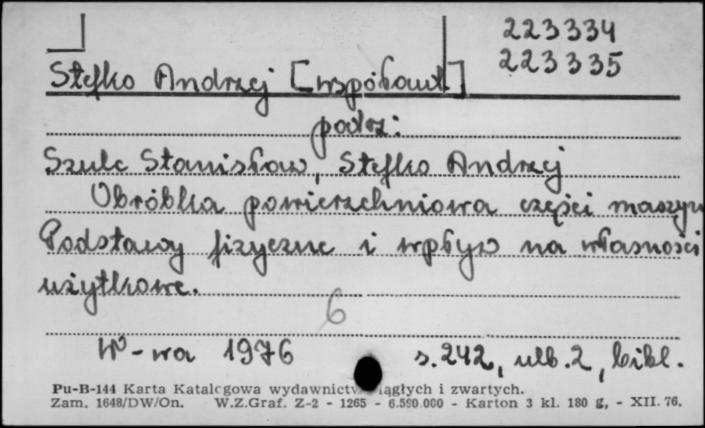 223334
223335
Stefko Andrzej [współaut]
podrz:
Szulc Stanisław, Stefko Andrzej
Obróbka powierzchniowa części maszyn
Podstawy fizyczne i wpływ na własności
użytkowe.
6
W-wa 1976 s. 242, nlb. 2, bibl.
Pu-B-144 Karta Katalogowa wydawnictw ciągłych i zwartych.
Zam. 1648/DW/On. W.Z.Graf. Z-2 - 1265 - 6.590.000 - Karton 3 kl. 180 g, - XII. 76.